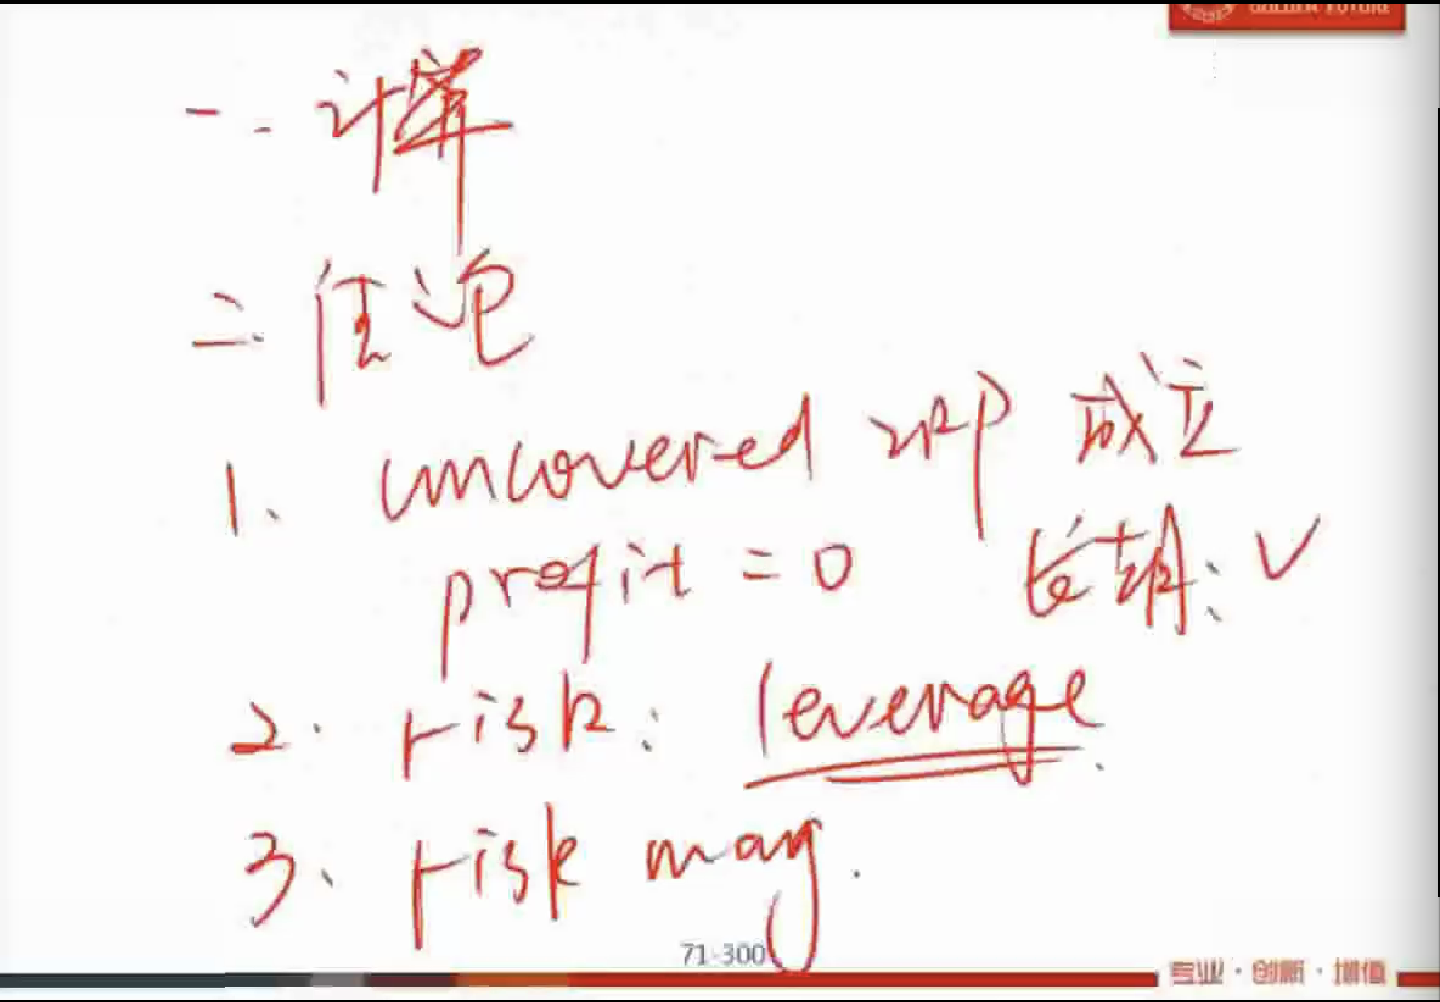 GOLDEN FUTURE
一. 计算
二. 结论
1. uncovered IRP 成立
profit = 0 长期: √
2. risk: leverage.
3. risk mag.
71-300
专业·创新·增值